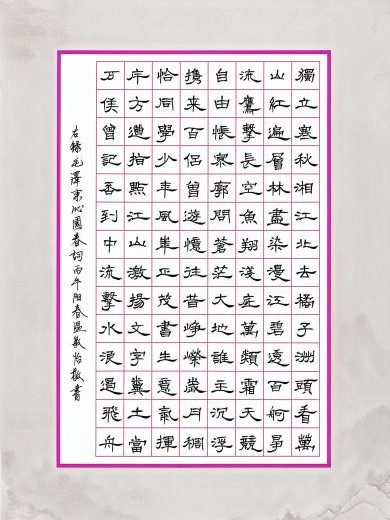 獨立寒秋湘江北去橘子洲頭看萬
山紅遍層林盡染漫江碧透百舸爭
流鷹擊長空魚翔淺底萬類霜天競
自由悵寥廓問蒼茫大地誰主沉浮
携来百侣曾遊憶往昔崢嶸歲月稠
恰同學少年風華正茂書生意氣揮
斥方遒指點江山激揚文字糞土當
万侯曾記否到中流擊水浪遏飛舟
右錄毛澤東沁園春詞丙午陽春温敏怡敬書